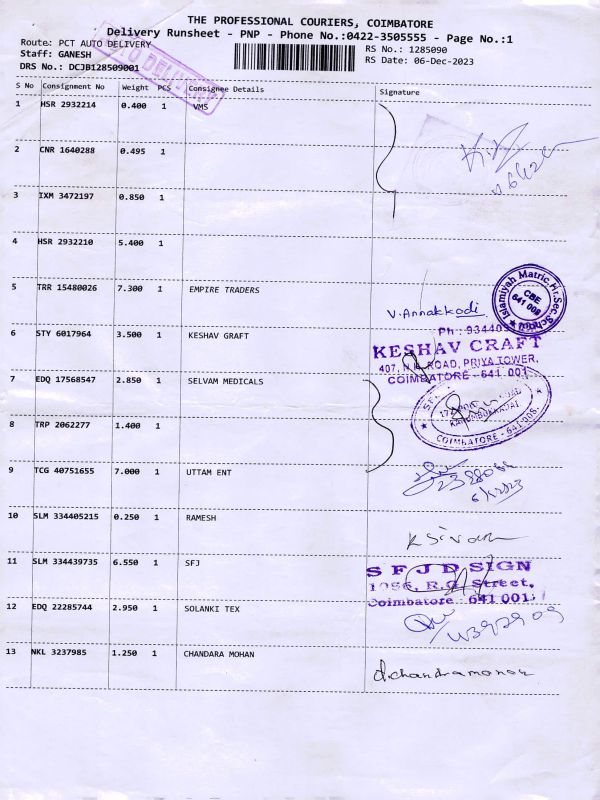 THE PROFESSIONAL COURIERS, COIMBATORE
Delivery Runsheet - PNP - Phone No.:0422-3505555 - Page No.:1
Route: PCT AUTO DELIVERY
RS No.: 1285090
Staff: GANESH
RS Date: 06-Dec-2023
DRS No.: DCJB128509001
S No Consignment No Weight PCS Consignee Details Signature
1 HSR 2932214 0.400 1 VMS
2 CNR 1640288 0.495 1
3 IXM 3472197 0.850 1
4 HSR 2932210 5.400 1
5 TRR 15480026 7.300 1 EMPIRE TRADERS
V. Annakkodi
Islamiyah Matric.Hr.Sec.School
CBE
641 008
6 STY 6017964 3.500 1 KESHAV GRAFT
KESHAV CRAFT
407, N.H. ROAD, PRIYA TOWER,
COIMBATORE - 641 001
7 EDQ 17568547 2.850 1 SELVAM MEDICALS
8 TRP 2062277 1.400 1
COIMBATORE - 641 008.
9 TCG 40751655 7.000 1 UTTAM ENT
10 SLM 334405215 0.250 1 RAMESH
K Sivam
11 SLM 334439735 6.550 1 SFJ
S F J D SIGN
Street,
Coimbatore 641 001
12 EDQ 22285744 2.950 1 SOLANKI TEX
13 NKL 3237985 1.250 1 CHANDARA MOHAN
d.chandramohan